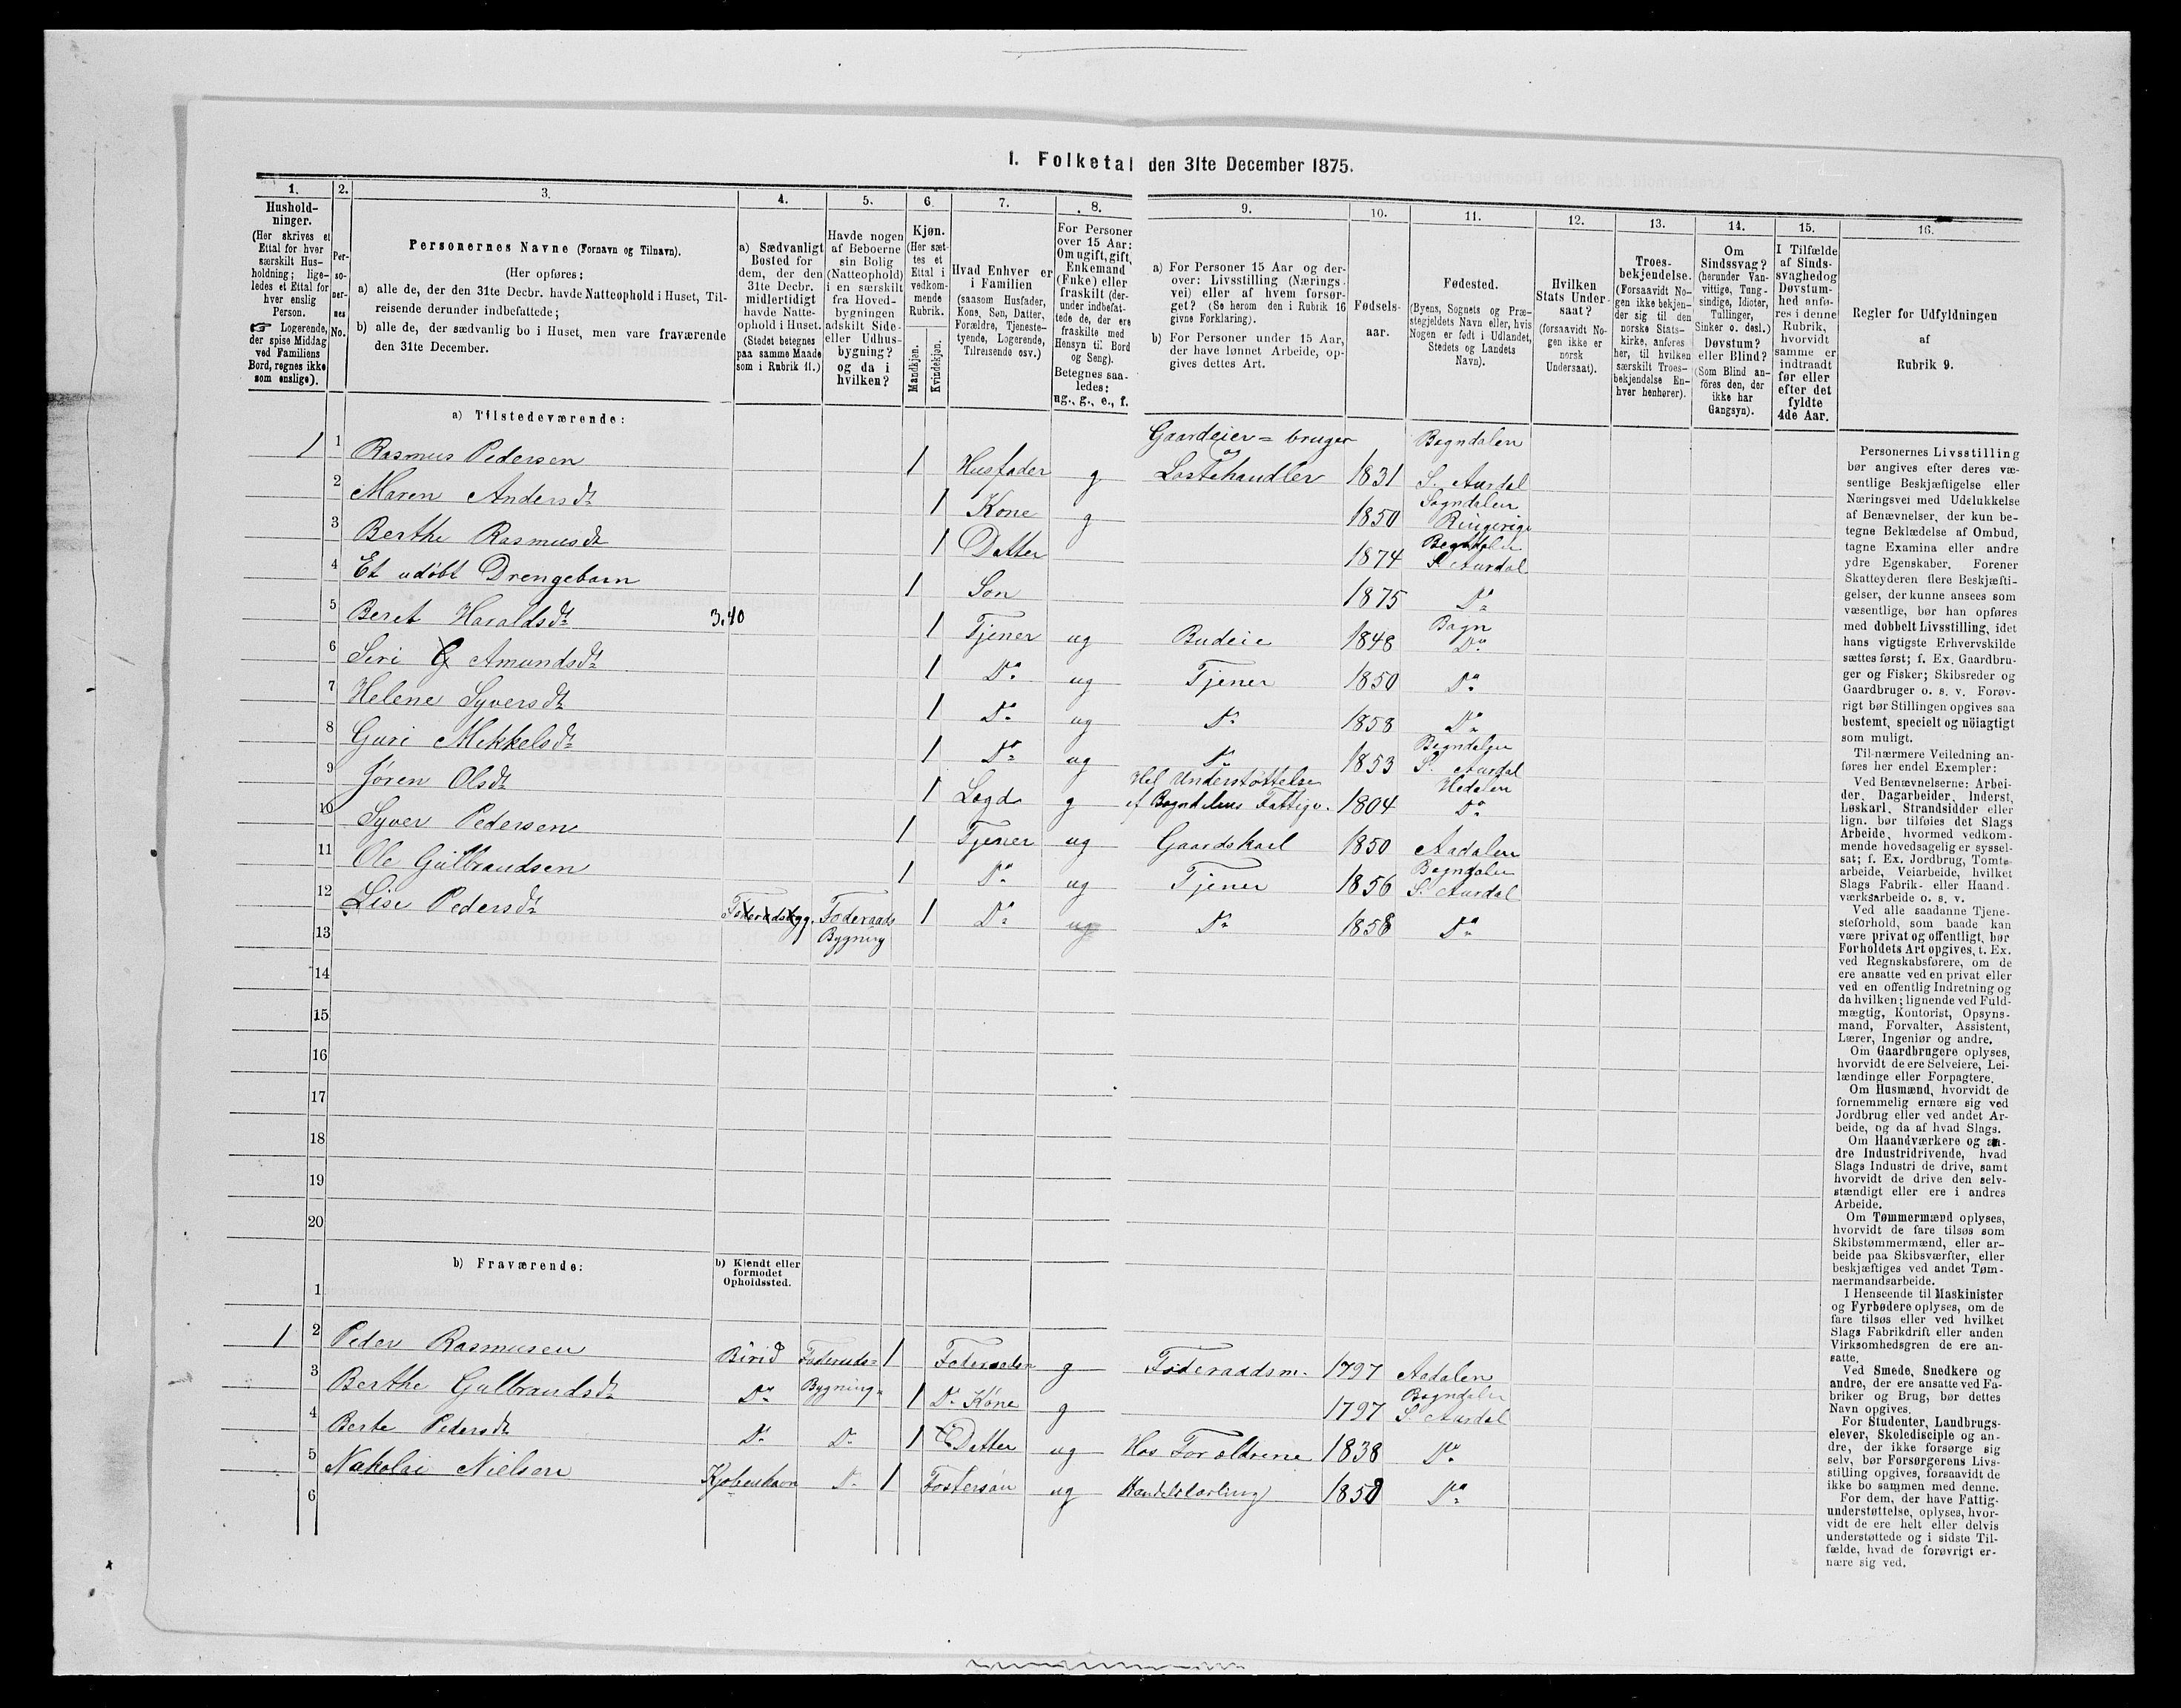 1. Folketal den 31te December 1875.
1. 2. 3. 4. 5. 6. 7. 8. 9. 10. 11. 12. 13. 14. 15. 16.
Hushold-
ninger.
(Her skrives et
Ettal for hver
særskilt Hus-
holdning; lige-
ledes et Ettal for
hver enslig
Person.
☞ Logerende,
der spise Middag
ved Familiens
Bord, regnes ikke
som enslige).
Per-
so-
ner-
nes
No.
Personernes Navne (Fornavn og Tilnavn).
(Her opføres:
a) alle de, der den 31te Decbr. havde Natteophold i Huset, Til-
reisende derunder indbefattede;
b) alle de, der sædvanlig bo i Huset, men vare fraværende
den 31te December.
a) Sædvanligt
Bosted for
dem, der den
31te Decbr.
midlertidigt
havde Natte-
ophold i Huset.
(Stedet betegnes
paa samme Maade
som i Rubrik 11.)
Havde nogen
af Beboerne
sin Bolig
(Natteophold)
i en særskilt
fra Hoved-
bygningen
adskilt Side-
eller Udhus-
bygning?
og da i
hvilken?
Kjøn.
(Her sæt-
tes et
Ettal i
vedkom-
mende
Rubrik.
Mandkjøn.
Kvindekjøn.
Hvad Enhver er
i Familien
(saasom Husfader,
Kone, Søn, Datter,
Forældre, Tjeneste-
tyende, Logerende,
Tilreisende osv.)
For Personer
over 15 Aar:
Om ugift, gift,
Enkemand
(Enke) eller
fraskilt (der-
under indbefat-
tede de, der ere
fraskilte med
Hensyn til Bord
og Seng).
Betegnes saa-
ledes:
ug., g., e., f.
a) For Personer 15 Aar og der-
over: Livsstilling (Nærings-
vei) eller af hvem forsør-
get? (Se herom den i Rubrik 16
givne Forklaring).
b) For Personer under 15 Aar,
der have lønnet Arbeide, op-
gives dettes Art.
Fødsels-
aar.
Fødested.
(Byens, Sognets og Præ-
stegjeldets Navn eller, hvis
Nogen er født i Udlandet,
Stedets og Landets
Navn).
Hvilken
Stats Under-
saat?
(forsaavidt No-
gen ikke er
norsk
Undersaat).
Troes-
bekjendelse.
(Forsaavidt No-
gen ikke bekjen-
der sig til den
norske Stats-
kirke, anføres
her, til hvilken
særskilt Troes-
bekjendelse En-
hver henhører).
Om
Sindssvag?
(herunder Van-
vittige, Tung-
sindige, Idioter,
Tullinger,
Sinker o. desl.)
Døvstum?
eller Blind?
(Som Blind an-
føres den, der
ikke har
Gangsyn).
I Tilfælde
af Sinds-
svaghed og
Døvstum-
hed anfø-
res i denne
Rubrik,
hvorvidt
samme er
indtraadt
før eller
efter det
fyldte
4de Aar.
Regler for Udfyldningen
af
Rubrik 9.
a) Tilstedeværende:
Gaardeier = bruger Bagndalen
1 1 Rasmus Pedersen 1 Husfader g Lastehandler 1831 S. Aurdal
2 Maren Andersdt 1 Kone g 1850 Sogndalen
Ringerige
3 Berthe Rasmusdt 1 Datter 1874 Bagndalen
S. Aurdal
4 Et udöbt Drengebarn 1 Søn 1875 Do
5 Beret Haraldsdt 3.40 1 Tjener ug Budeie 1848 Bagn
Do
6 Siri Amundsdt 1 Do ug Tjener 1850 Do
7 Helene Syversdt 1 Do ug Do 1858 Do
8 Guri Mikkelsdt 1 Do ug Do 1853 Bagndalen
S. Aurdal
9 Jøren Olsdt 1 Lægd g Hel Understøttelse
af Bagndalens Fattigv. 1804 Hedalen
Do
10 Syver Pedersen 1 Tjener ug Gaardskarl 1850 Aadalen
11 Ole Gulbrandsen 1 Do ug Tjener 1856 Bagndalen
S. Aurdal
12 Lise Pedersdt Foderadsbygg. Foderaads
Bygning 1 Do ug Do 1858 Do
13
14
15
16
17
18
19
20
b) Fraværende:
b) Kjendt eller
formodet
Opholdssted.
1
1 2 Peder Rasmusen Birid Foderads= 1 g Føderaadsm. 1797 Aadalen
3 Berthe Gulbrandsdt Do Bygning 1 Do Kone g 1797 Bagndalen
S. Aurdal
4 Berte Pedersdt Do Do 1 Datter ug Hos Forældrene 1838 Do
5 Nikolai Nielsen Kjøbenhavn Do 1 Fostersøn ug Handelslærling 1858 Do
6
Personernes Livsstilling
bør angives efter deres væ-
sentlige Beskjæftigelse eller
Næringsvei med Udelukkelse
af Benævnelser, der kun be-
tegne Beklædelse af Ombud,
tagne Examina eller andre
ydre Egenskaber. Forener
Skatteyderen flere Beskjæfti-
gelser, der kunne ansees som
væsentlige, bør han opføres
med dobbelt Livsstilling, idet
hans vigtigste Erhvervskilde
sættes først; f. Ex. Gaardbru-
ger og Fisker; Skibsreder og
Gaardbruger o. s. v. Forøv-
rigt bør Stillingen opgives saa
bestemt, specielt og nöiagtigt
som muligt.
Til nærmere Veiledning an-
føres her endel Exempler:
Ved Benævnelserne: Arbei-
der, Dagarbeider, Inderst,
Løskarl, Strandsidder eller
lign. bør tilføies det Slags
Arbeide, hvormed vedkom-
mende hovedsagelig er syssel-
sat; f. Ex. Jordbrug, Tomte-
arbeide, Veiarbeide, hvilket
Slags Fabrik- eller Haand-
værksarbeide o. s. v.
Ved alle saadanne Tjene-
steforhold, som baade kan
være privat og offentligt, bør
Forholdets Art opgives, t. Ex.
ved Regnskabsførere, om de
ere ansatte ved en privat eller
ved en offentlig Indretning og
da hvilken; lignende ved Fuld-
mægtig, Kontorist, Opsyns-
mand, Forvalter, Assistent,
Lærer, Ingeniør og andre.
Om Gaardbrugere oplyses,
hvorvidt de ere Selveiere, Lei-
lændinge eller Forpagtere.
Om Husmænd, hvorvidt de
fornemmelig ernære sig ved
Jordbrug eller ved andet Ar-
beide, og da af hvad Slags.
Om Haandværkere og an-
dre Industridrivende, hvad
Slags Industri de drive, samt
hvorvidt de drive den selv-
stændigt eller ere i andres
Arbeide.
Om Tømmermænd oplyses,
hvorvidt de fare tilsøs som
Skibstømmermænd, eller ar-
beide paa Skibsværfter, eller
beskjæftiges ved andet Tøm-
mermandsarbeide.
I Henseende til Maskinister
og Fyrbødere oplyses, om de
fare tilsøs eller ved hvilket
Slags Fabrikdrift eller anden
Virksomhedsgren de ere an-
satte.
Ved Smede, Snedkere og
andre, der ere ansatte ved Fa-
briker og Brug, bør dettes
Navn opgives.
For Studenter, Landbrugs-
elever, Skoledisciple og an-
dre, der ikke forsørge sig
selv, bør Forsørgerens Livs-
stilling opgives, forsaavidt de
ikke bo sammen med denne.
For dem, der have Fattig-
understøttelse, oplyses, hvor-
vidt de ere helt eller delvis
understøttede og i sidste Til-
fælde, hvad de forøvrigt er-
nære sig ved.